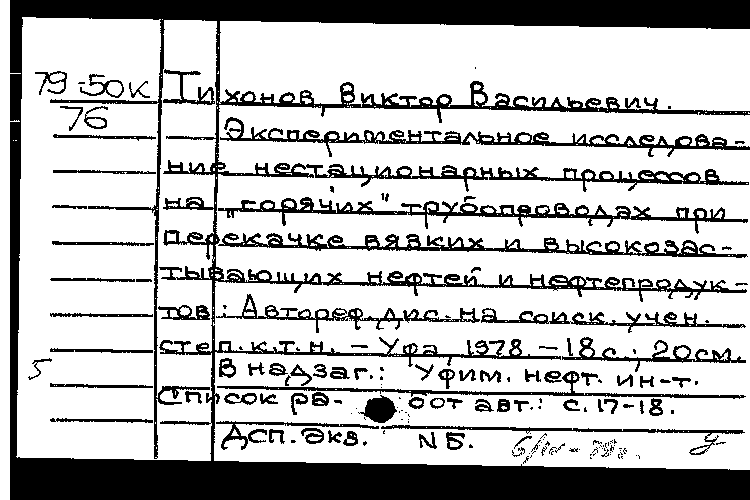 79-50к Тихонов, Виктор Васильевич.
76 Экспериментальное исследова-
ние нестационарных процессов
на "горячих" трубопроводах при
перекачке вязких и высокозас-
тывающих нефтей и нефтепродук-
тов: Автореф. дис. на соиск. учен.
степ. к.т.н. – Уфа, 1978. – 18 с.; 20см.
В надзаг.: Уфим. нефт. ин-т.
Список ра- бот авт.: с. 17-18.
Дсп. Экз. N Б.